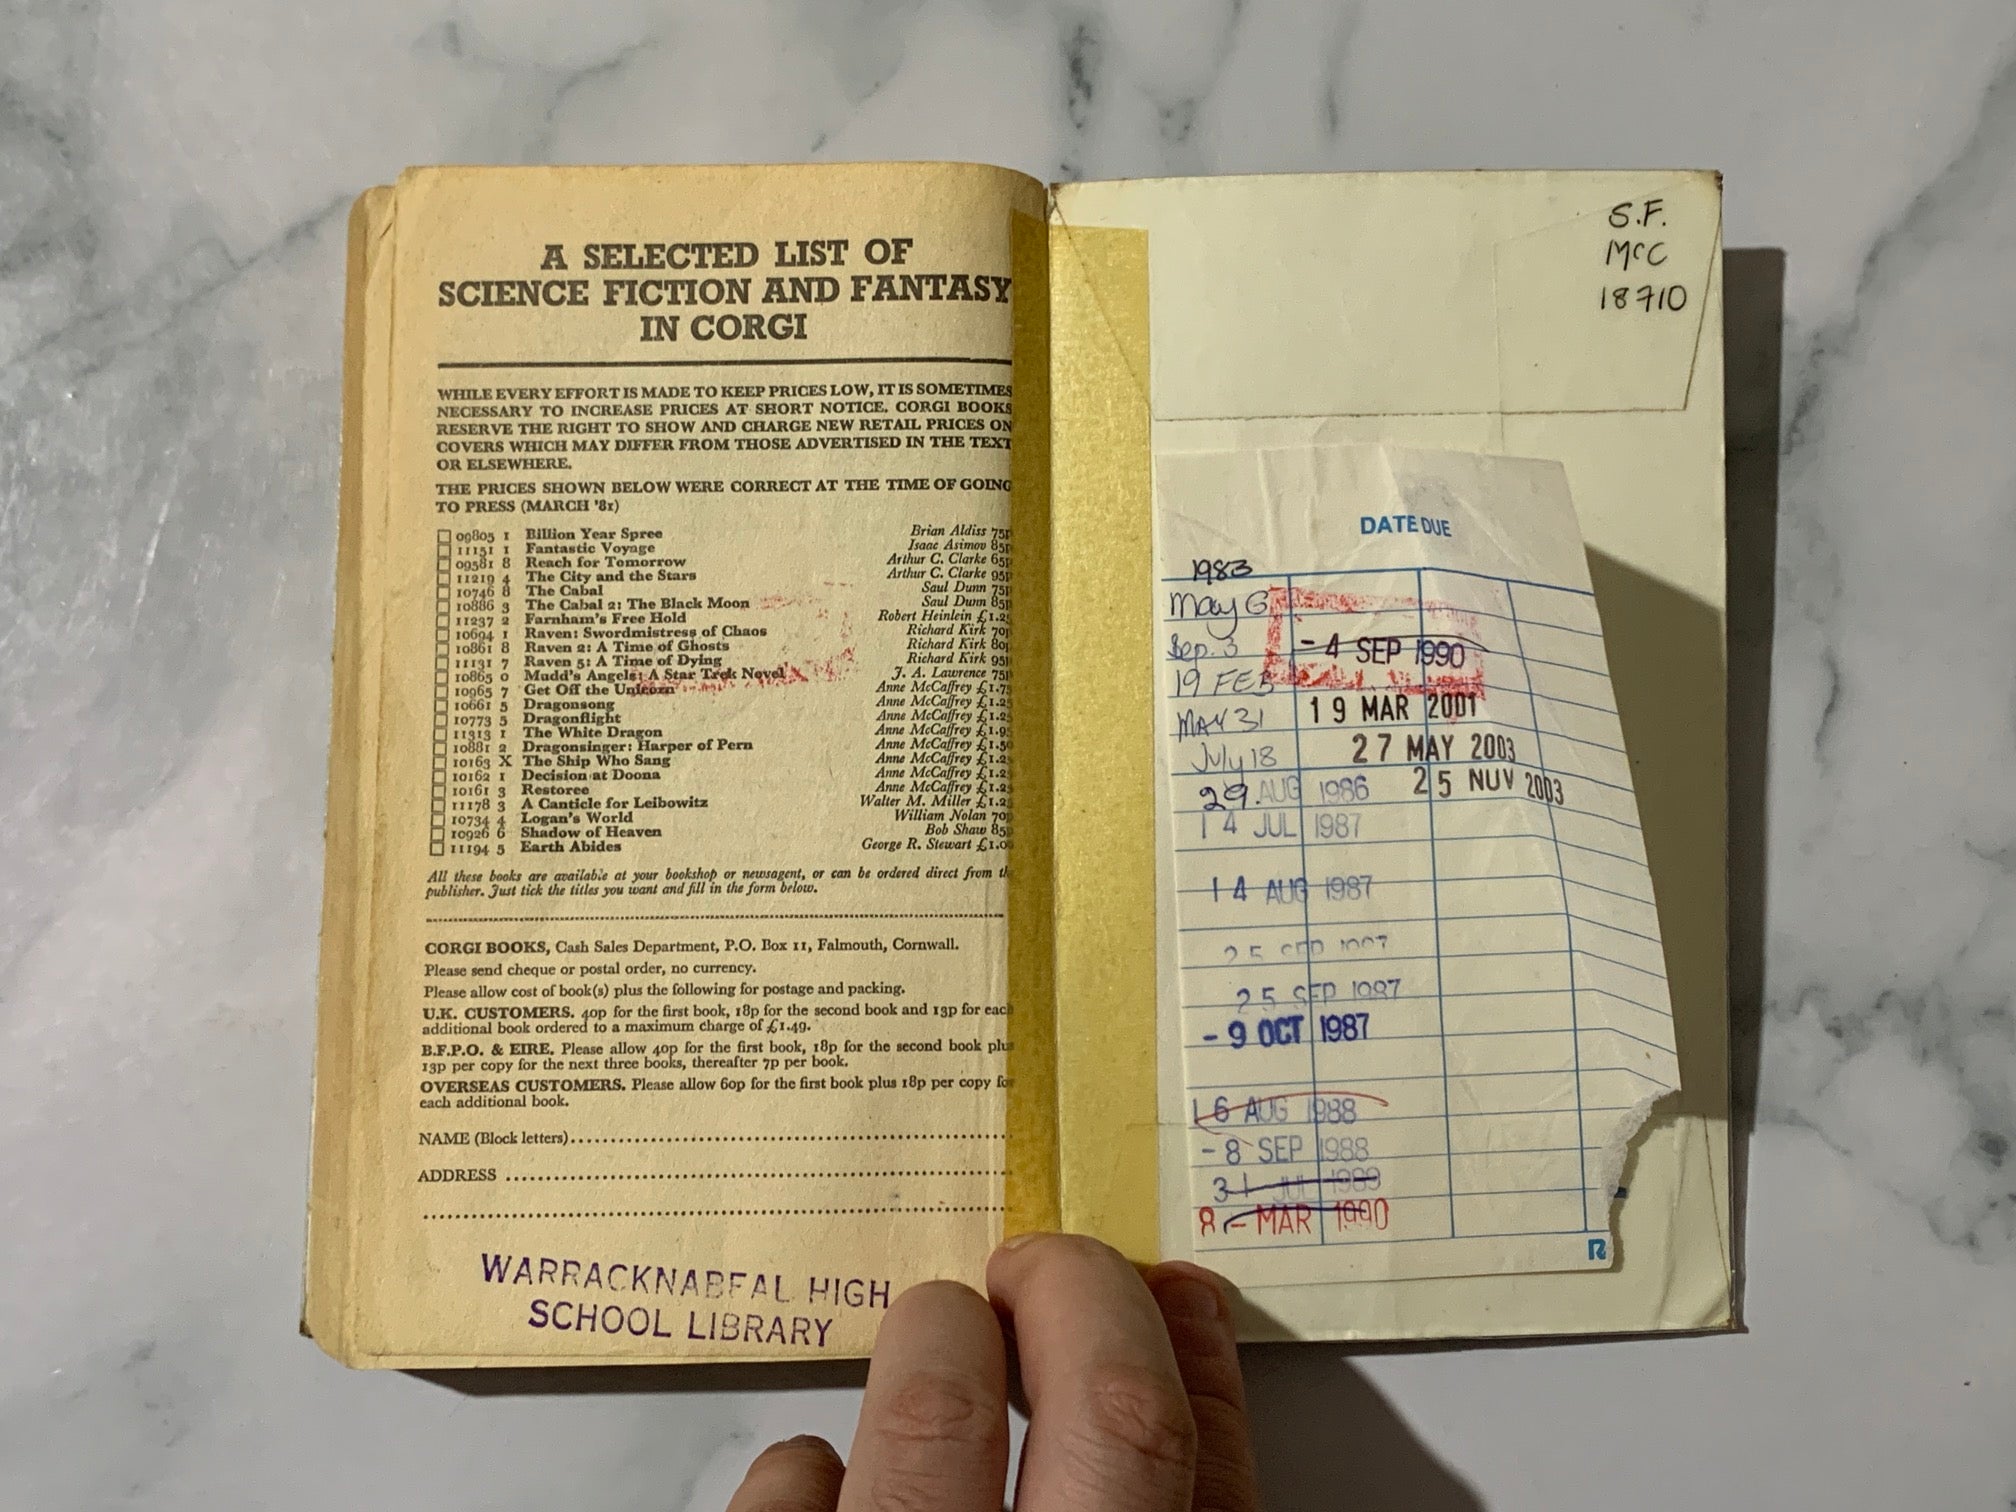 A SELECTED LIST OF
SCIENCE FICTION AND FANTASY
IN CORGI
WHILE EVERY EFFORT IS MADE TO KEEP PRICES LOW, IT IS SOMETIMES
NECESSARY TO INCREASE PRICES AT SHORT NOTICE. CORGI BOOKS
RESERVE THE RIGHT TO SHOW AND CHARGE NEW RETAIL PRICES ON
COVERS WHICH MAY DIFFER FROM THOSE ADVERTISED IN THE TEXT
OR ELSEWHERE.
THE PRICES SHOWN BELOW WERE CORRECT AT THE TIME OF GOING
TO PRESS (MARCH '81)
09805 1 Billion Year Spree Brian Aldiss 75p
11151 1 Fantastic Voyage Isaac Asimov 85p
09581 8 Reach for Tomorrow Arthur C. Clarke 65p
11219 4 The City and the Stars Arthur C. Clarke 95p
10746 8 The Cabal Saul Dunn 75p
10886 3 The Cabal 2: The Black Moon Saul Dunn 85p
11237 2 Farnham's Free Hold Robert Heinlein £1.2
10694 1 Raven: Swordmistress of Chaos Richard Kirk 70p
10861 8 Raven 2: A Time of Ghosts Richard Kirk 80p
11131 7 Raven 5: A Time of Dying Richard Kirk 95p
10865 0 Mudd's Angels: A Star Trek Novel J. A. Lawrence 75p
10965 7 Get Off the Unicorn Anne McCaffrey £1.75
10661 5 Dragonsong Anne McCaffrey £1.25
10773 5 Dragonflight Anne McCaffrey £1.25
11313 1 The White Dragon Anne McCaffrey £1.95
10881 2 Dragonsinger: Harper of Pern Anne McCaffrey £1.50
10163 X The Ship Who Sang Anne McCaffrey £1.25
10162 1 Decision at Doona Anne McCaffrey £1.25
10161 3 Restoree Anne McCaffrey £1.25
11178 3 A Canticle for Leibowitz Walter M. Miller £1.25
10734 4 Logan's World William Nolan 70p
10926 6 Shadow of Heaven Bob Shaw 85p
11194 5 Earth Abides George R. Stewart £1.00
All these books are available at your bookshop or newsagent, or can be ordered direct from th
publisher. Just tick the titles you want and fill in the form below.
CORGI BOOKS, Cash Sales Department, P.O. Box 11, Falmouth, Cornwall.
Please send cheque or postal order, no currency.
Please allow cost of book(s) plus the following for postage and packing.
U.K. CUSTOMERS. 40p for the first book, 18p for the second book and 13p for each
additional book ordered to a maximum charge of £1.49.
B.F.P.O. & EIRE. Please allow 40p for the first book, 18p for the second book plus
13p per copy for the next three books, thereafter 7p per book.
OVERSEAS CUSTOMERS. Please allow 60p for the first book plus 18p per copy for
each additional book.
NAME (Block letters)
ADDRESS
WARRACKNABEAL HIGH
SCHOOL LIBRARY
S.F.
McC
18710
DATE DUE
1983
May 6
Sep. 3 - 4 SEP 1990
19 FEB
MAY 31 19 MAR 2001
July 18 27 MAY 2003
29 AUG 1986 25 NOV 2003
14 JUL 1987
14 AUG 1987
25 SEP 1987
25 SEP 1987
- 9 OCT 1987
16 AUG 1988
- 8 SEP 1988
31 JUL 1989
8 - MAR 1990